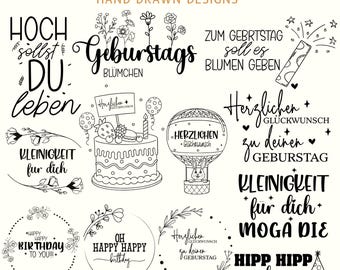 HAND DRAWN DESIGNS
HOCH
sollst
DU
leben
Geburtstags
BLÜMCHEN
ZUM GEBRTSTAG
soll es
BLUMEN GEBEN
Herzlichen
GLÜCKWUNSCH
zu deinen
GEBURTSTAG
KLEINIGKEIT
für dich
Herzlichen
HERZLICHEN
KLEINIGKEIT
für dich
MOGA DIE
HAPPY
HAPPY
BIRTHDAY
TO YOU!!!
OH
HAPPY HAPPY
birthday
Herzlichen
GLÜCKWUNSCH
zu deinen
GEBURTSTAG
HIPP HIPP